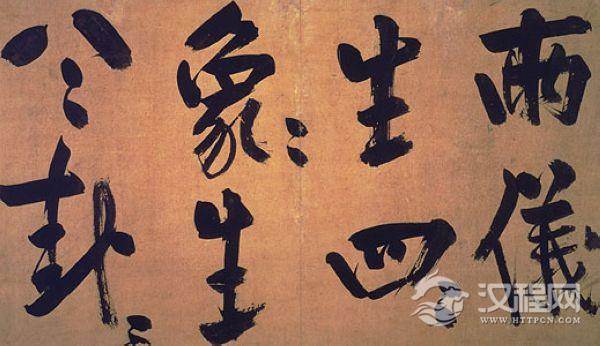 兩儀
生四
象〻生
八〻卦〻
汉程网
WWW.HTTPCN.COM